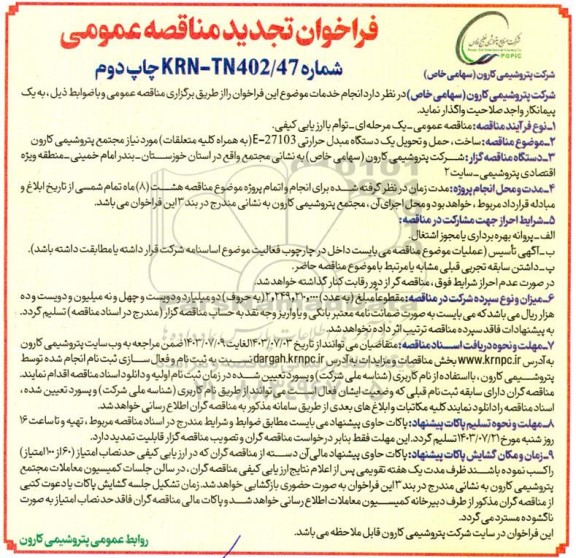 فراخوان تجدید مناقصه عمومی
شماره KRN-TN402/47 چاپ دوم
شرکت صنایع پتروشیمی خلیج فارس
PGPIC
شرکت پتروشیمی کارون (سهامی خاص)
شرکت پتروشیمی کارون (سهامی خاص) در نظر دارد انجام خدمات موضوع این فراخوان را از طریق برگزاری مناقصه عمومی و با ضوابط ذیل، به یک
پیمانکار واجد صلاحیت واگذار نماید.
۱-نوع فرآیند مناقصه: مناقصه عمومی-یک مرحله ای-توأم با ارزیابی کیفی.
۲-موضوع مناقصه: ساخت، حمل و تحویل یک دستگاه مبدل حرارتی E-27103 (به همراه کلیه متعلقات) مورد نیاز مجتمع پتروشیمی کارون
۳-دستگاه مناقصه گزار: شرکت پتروشیمی کارون (سهامی خاص) به نشانی مجتمع واقع در استان خوزستان-بندر امام خمینی-منطقه ویژه
اقتصادی پتروشیمی-سایت ۲
۴-مدت و محل انجام پروژه: مدت زمان در نظر گرفته شده برای انجام و اتمام پروژه موضوع مناقصه هشت (۸) ماه تمام شمسی از تاریخ ابلاغ و
مبادله قرارداد مربوط، خواهد بود و محل اجرای آن، مجتمع پتروشیمی کارون به نشانی مندرج در بند ۳ این فراخوان می باشد.
۵-شرایط احراز جهت مشارکت در مناقصه:
الف-پروانه بهره برداری یا مجوز اشتغال.
ب-آگهی تأسیس (عملیات موضوع مناقصه می بایست داخل در چارچوب فعالیت موضوع اساسنامه شرکت قرار داشته یا مطابقت داشته باشد).
پ-داشتن سابقه تجربی قبلی مشابه یا مرتبط با موضوع مناقصه حاضر.
در صورت عدم احراز شرایط فوق، مناقصه گر از دور رقابت کنار گذاشته خواهد شد.
۶-میزان و نوع سپرده شرکت در مناقصه: مقطوعاً مبلغ (به عدد) ۲،۲۴۹،۲۱۰،۰۰۰ (به حروف) دو میلیارد و دویست و چهل و نه میلیون و دویست و ده
هزار ریال می باشد که می بایست به صورت ضمانت نامه معتبر بانکی و یا واریز وجه نقد به حساب مناقصه گزار (مندرج در اسناد مناقصه) تسلیم گردد.
به پیشنهادات فاقد سپرده مناقصه ترتیب اثر داده نخواهد شد.
۷-مهلت و نحوه دریافت اسناد مناقصه: متقاضیان می توانند از تاریخ ۱۴۰۳/۰۷/۰۳ لغایت ۱۴۰۳/۰۷/۰۹ ضمن مراجعه به وب سایت پتروشیمی کارون
به آدرس www.krnpc.ir بخش مناقصات و مزایدات به آدرس dargah.krnpc.ir نسبت به ثبت نام و فعال سازی ثبت نام انجام شده توسط
پتروشیمی کارون، با استفاده از نام کاربری (شناسه ملی شرکت) و پسورد تعیین شده در زمان ثبت نام اولیه و دانلود اسناد مناقصه اقدام نمایند.
مناقصه گران دارای سابقه ثبت نام قبلی که وضعیت ایشان فعال است می توانند از طریق نام کاربری (شناسه ملی شرکت) و پسورد تعیین شده،
اسناد مناقصه را دانلود نمایند کلیه مکاتبات و ابلاغ های بعدی از طریق سامانه مذکور به مناقصه گران اطلاع رسانی خواهد شد.
۸-مهلت و نحوه تسلیم پاکات پیشنهاد: پاکات حاوی پیشنهاد می بایست مطابق ضوابط و شرایط مندرج در اسناد مناقصه مربوط، تهیه و تا ساعت ۱۶
روز شنبه مورخ ۱۴۰۳/۰۷/۲۱ تسلیم گردد. این مهلت فقط بنابر درخواست مناقصه گران و تصویب مناقصه گزار قابلیت تمدید دارد.
۹-زمان و مکان گشایش پاکات پیشنهاد: پاکات حاوی پیشنهاد مالی آن دسته از مناقصه گران که در ارزیابی کیفی حد نصاب امتیاز (۶۰ از ۱۰۰ امتیاز)
را کسب نموده باشند ظرف مدت یک هفته تقویمی پس از اعلام نتایج ارزیابی کیفی مناقصه گران، در سالن جلسات کمیسیون معاملات مجتمع
پتروشیمی کارون به نشانی مندرج در بند ۳ این فراخوان به صورت حضوری بازگشایی خواهد شد. زمان تشکیل جلسه گشایش پاکات یا دعوت کتبی
از مناقصه گران مذکور از طرف دبیرخانه کمیسیون معاملات اطلاع رسانی خواهد شد و پاکات مالی مناقصه گران فاقد حد نصاب امتیاز به صورت
ناگشوده مسترد می گردد.
این فراخوان در سایت شرکت پتروشیمی کارون قابل ملاحظه می باشد.
روابط عمومی پتروشیمی کارون